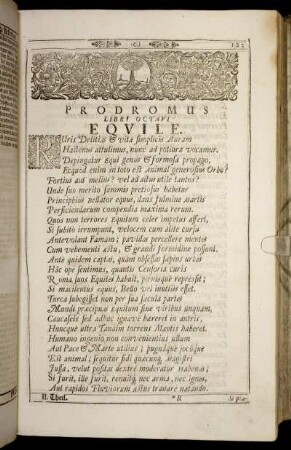 PRODROMUS
LIBRI OCTAVI
EQVILE.
RUris Delitias & vitæ simplicis Auram
Hactenus attulimus, nunc ad potiora vocamur.
Depingatur Equi genus & formosa propago,
Ecquod enim in toto est Animal generosius Orbe?
Fortius aut melius? vel ad actus utile tantos?
Unde suo meritò summis pretiosus habetur
Principibus bellator equus, dans fulminis martis
Perficiendarum compendia maxima rerum.
Quos non terrores Equitum celer impetus affert,
Si subitò irrumpunt, velocem cum alite cursu
Antevolant Famam; pavidas percellere mentes
Cum vehementi æstu, & grandi formidine possunt.
Ante quidem captas, quàm obsessas sæpius urbes
Hâc ope sentimus, quantis Censoria curis
Romanos Equites habuit, pornisque represset;
Si macilentus equus, Bello vel inutilis esset.
Turca subegisset non per sua sæcula partes
Mundi præcipuas Equitum sine viribus unquam,
Caucaseis sed adhuc ignavè hæreret in antris,
Huncque ultra Tanaim torrens Mæotis haberet.
Humano ingenio non convenientius ullum
Aut Pace & Marte utilius; pugnæque jocóque
Est animal; sequitur fidi quæcunque Magistri
Jussa, velut positas dextrè moderatur habenas;
Si jurit, ille jurit, renuitq; nec arma, nec ignes,
Aut rapidos Fluviorum æstus tranare natando.
II. Theil.
* B
Si pla-